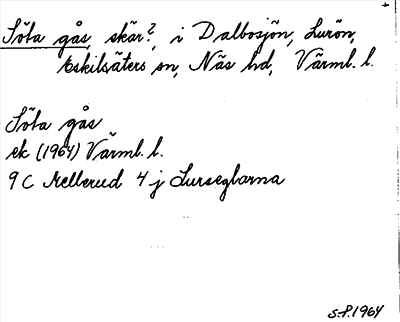 Söta gås, skär?, i Dalbosjön, Lurön,
Eskilsäters sn, Näs hd, Värml. l.
Söta gås
ek (1964) Värml. l.
9 C Mellerud 4 j Lurseglarna
S.P. 1964